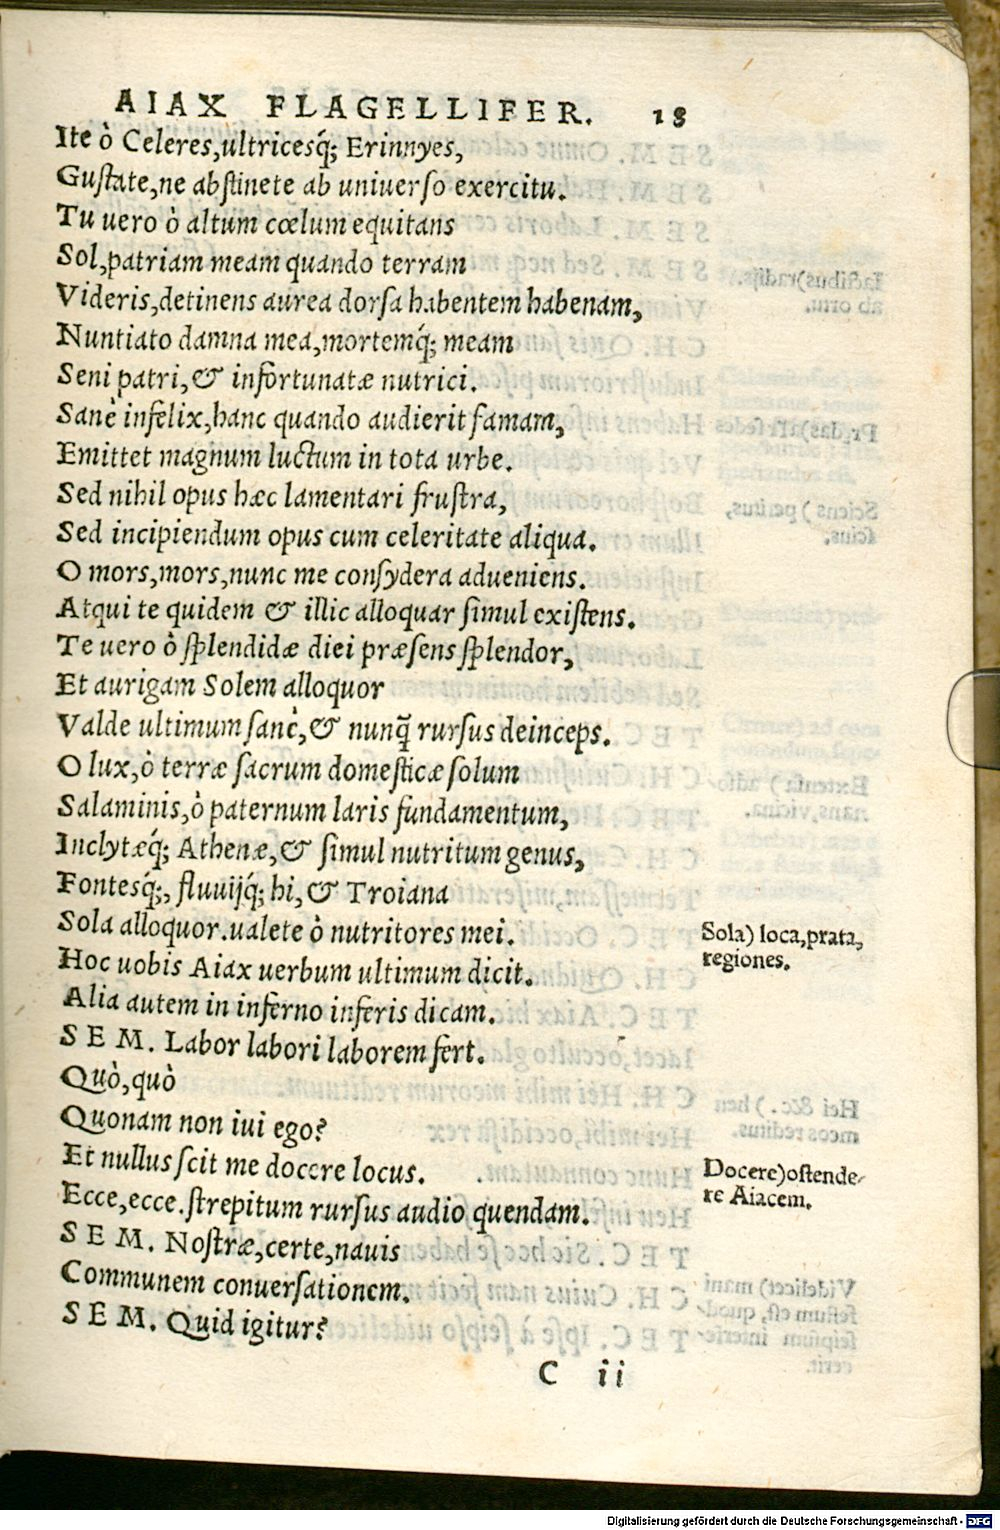 AIAX FLAGELLIFER. 18
Ite ò Celeres, ultricesq́; Erinnyes,
Gustate, ne abstinete ab uniuerso exercitu.
Tu uero ò altum cœlum equitans
Sol, patriam meam quando terram
Videris, detinens aurea dorsa habentem habenam,
Nuntiato damna mea, mortemq́; meam
Seni patri, & infortunatæ nutrici.
Sanè infelix, hanc quando audierit famam,
Emittet magnum luctum in tota urbe.
Sed nihil opus hæc lamentari frustra,
Sed incipiendum opus cum celeritate aliqua.
O mors, mors, nunc me consydera adueniens.
Atqui te quidem & illic alloquar simul existens.
Te uero ò splendidæ diei præsens splendor,
Et aurigam Solem alloquor
Valde ultimum sanè, & nunq̃ rursus deinceps.
O lux, ò terræ sacrum domesticæ solum
Salaminis, ò paternum laris fundamentum,
Inclytæq́; Athenæ, & simul nutritum genus,
Fontesq́;, fluuijq́; hi, & Troiana
Sola alloquor. ualete ò nutritores mei.
Sola) loca, prata,
regiones.
Hoc uobis Aiax uerbum ultimum dicit.
Alia autem in inferno inferis dicam.
SEM. Labor labori laborem fert.
Quò, quò
Quonam non iui ego?
Et nullus scit me docere locus.
Docere) ostende-
re Aiacem.
Ecce, ecce. strepitum rursus audio quendam.
SEM. Nostræ, certe, nauis
Communem conuersationem.
SEM. Quid igitur?
C ii
Digitalisierung gefördert durch die Deutsche Forschungsgemeinschaft - DFG